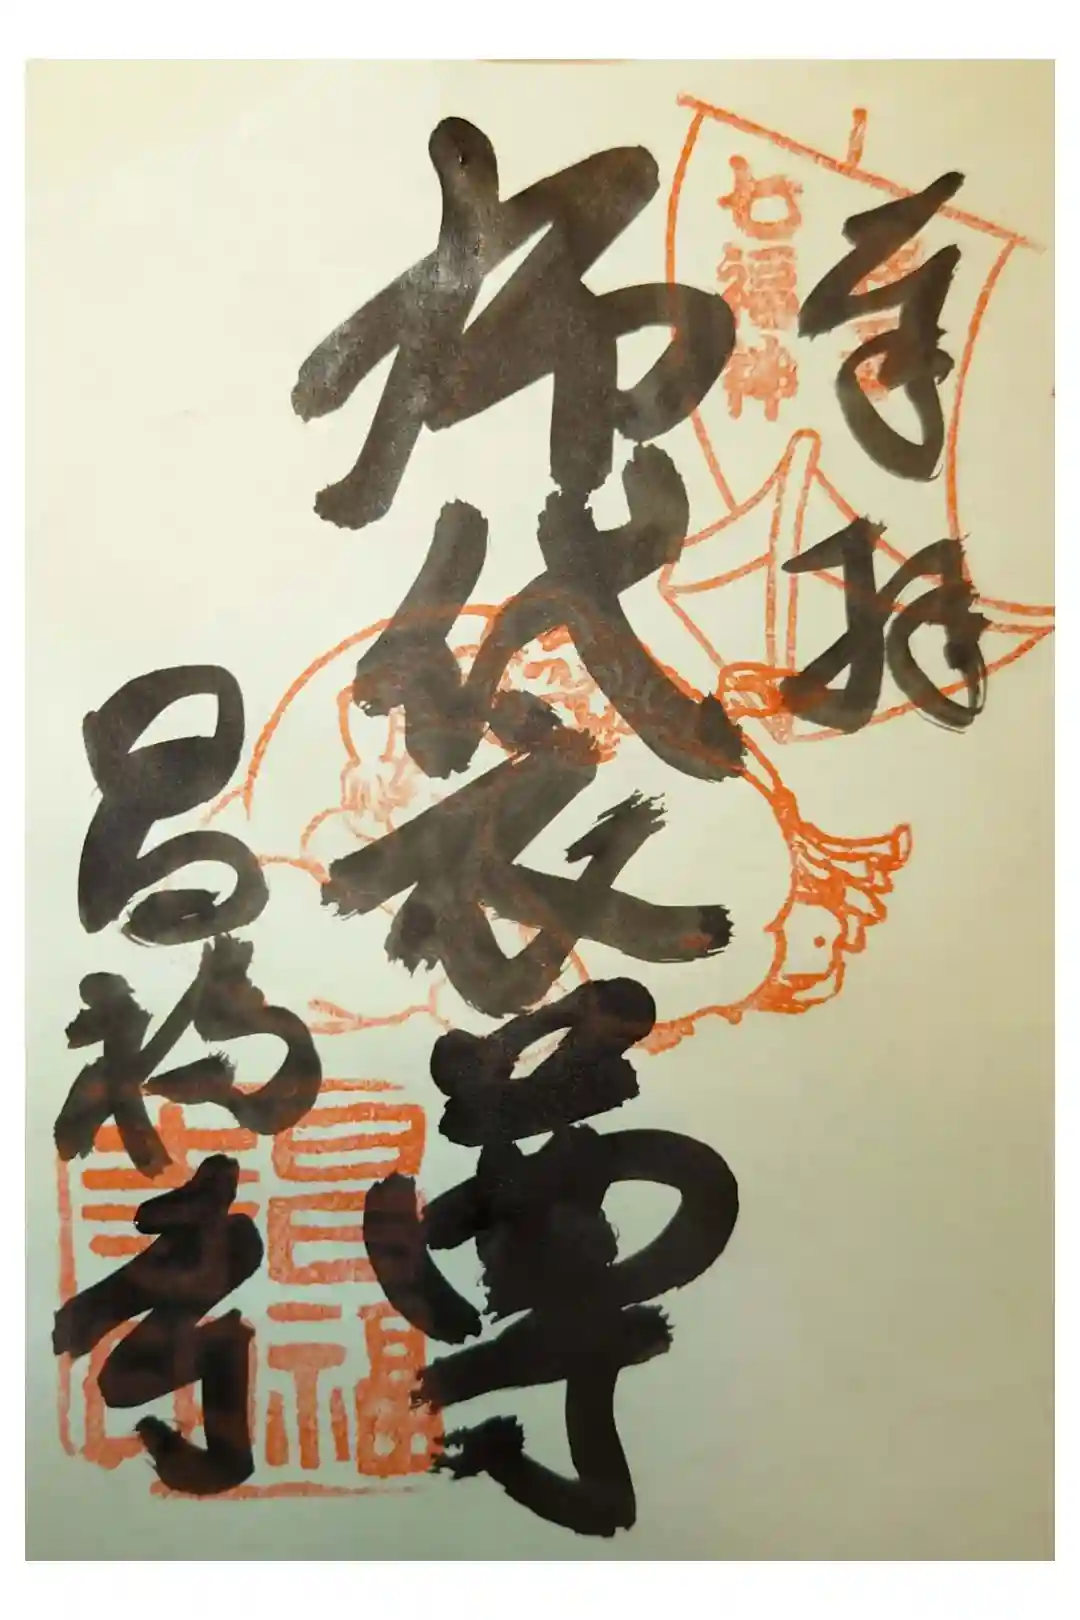 奉拝
七福神
布袋尊
昌福寺
昌福
寺印